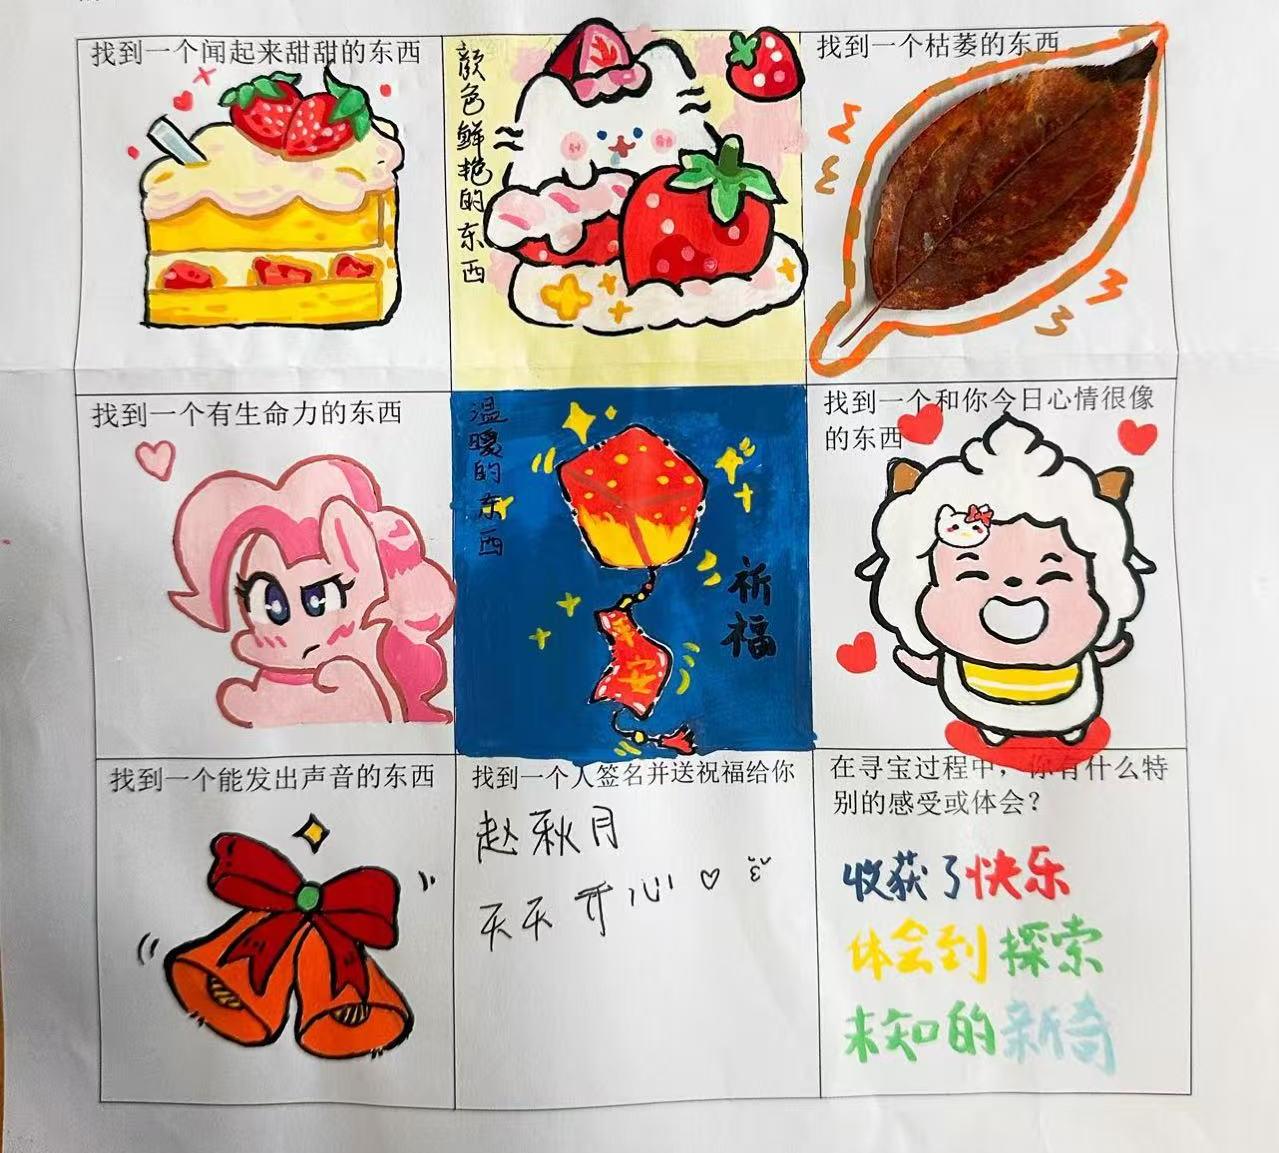 找到一个闻起来甜甜的东西
颜色鲜艳的东西
找到一个枯萎的东西
找到一个有生命力的东西
温暖的东西
平安
祈福
找到一个和你今日心情很像
的东西
找到一个能发出声音的东西
找到一个人签名并送祝福给你
赵秋月
天天开心
在寻宝过程中，你有什么特
别的感受或体会？
收获了快乐
体会到探索
未知的新奇